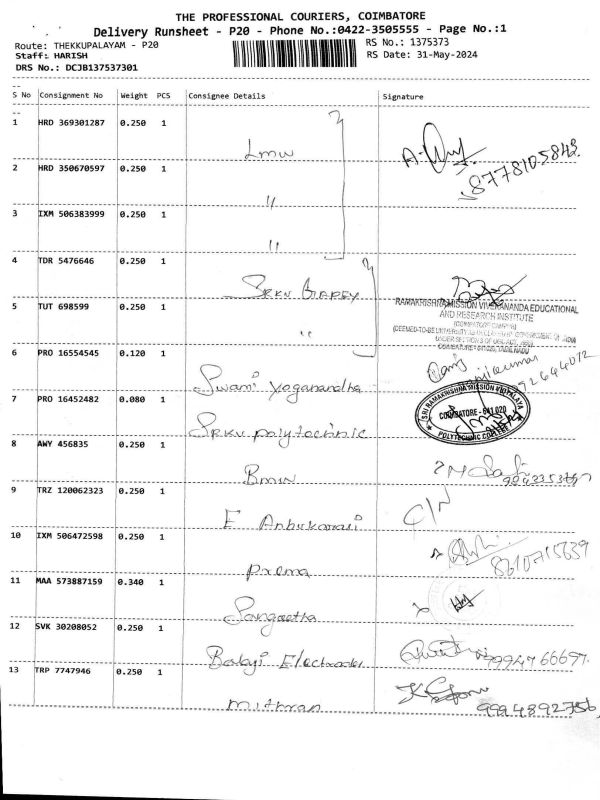 THE PROFESSIONAL COURIERS, COIMBATORE
Delivery Runsheet - P20 - Phone No.:0422-3505555 - Page No.:1
Route: THEKKUPALAYAM - P20
RS No.: 1375373
Staff: HARISH
RS Date: 31-May-2024
DRS No.: DCJB137537301
S No Consignment No Weight PCS Consignee Details Signature
1 HRD 369301287 0.250 1
Lmw
8778105843
2 HRD 350670597 0.250 1
"
3 IXM 506383999 0.250 1
"
4 TDR 5476646 0.250 1
SRKV
RAMAKRISHNA MISSION VIVEKANANDA EDUCATIONAL
AND RESEARCH INSTITUTE
5 TUT 698599 0.250 1
"
6 PRO 16554545 0.120 1
Swami Yoganandha
7 PRO 16452482 0.080 1
SRKV polytechnic
SRI RAMAKRISHNA MISSION VIDYALAYA
COIMBATORE - 641 020
POLYTECHNIC COLLEGE
8 AWY 456835 0.250 1
Bmw
9 TRZ 120062323 0.250 1
E Anbukarasi
C/N
10 IXM 506472598 0.250 1
Prema
8610715639
11 MAA 573887159 0.340 1
Sangeetha
12 SVK 30208052 0.250 1
Balaji
9994766697
13 TRP 7747946 0.250 1
Mithran
9994892756